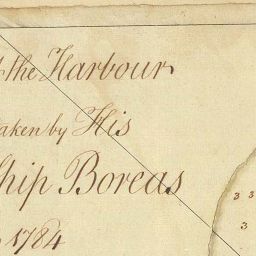 the Harbour
taken by His
Ship Boreas
1784
3 3
3